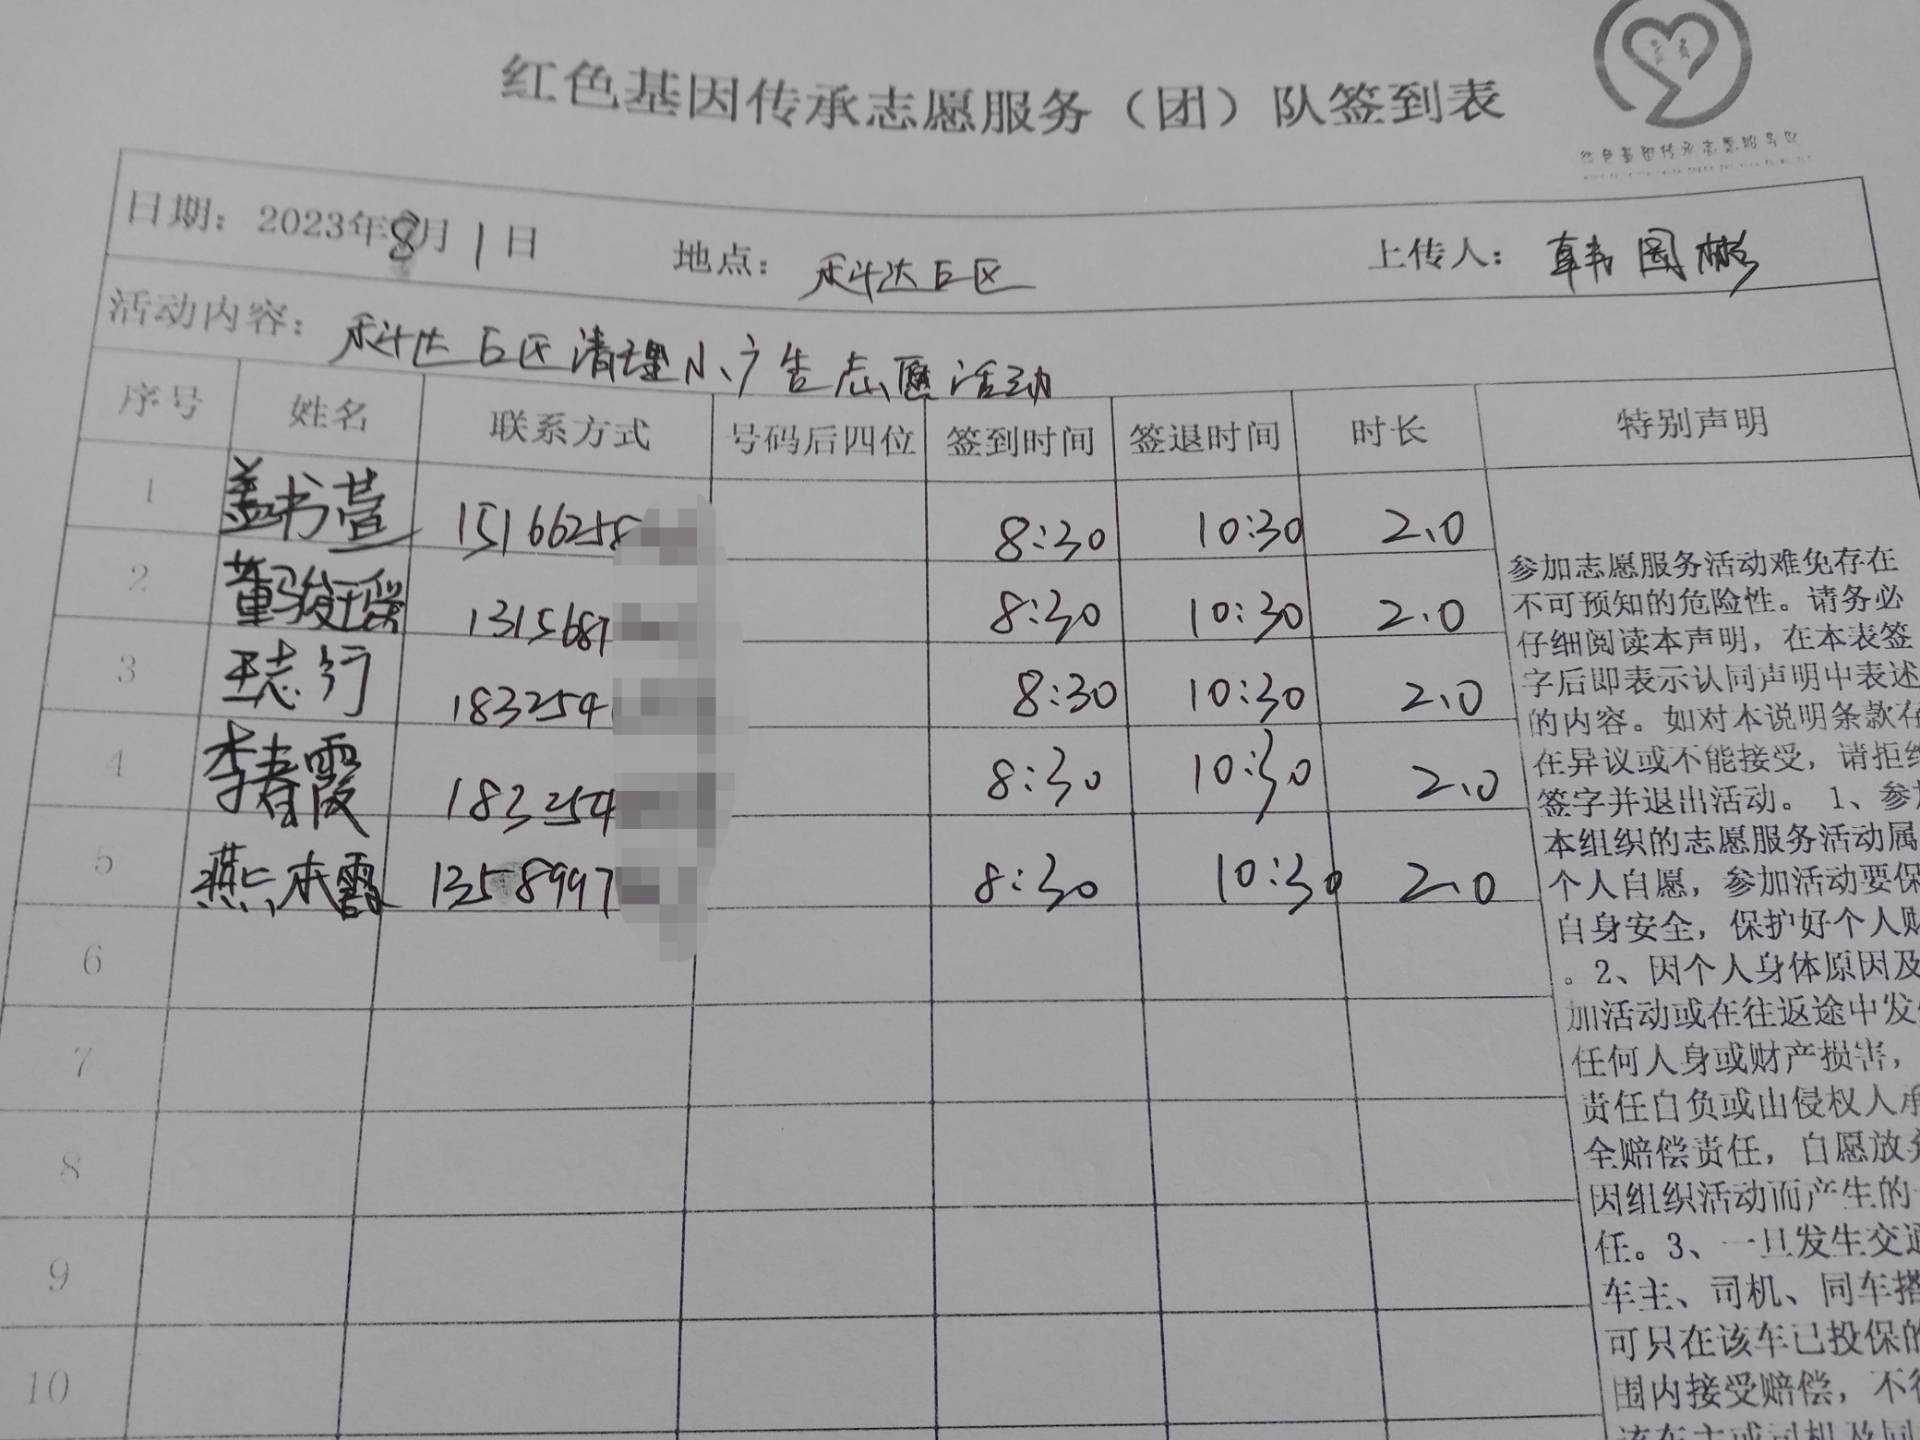 红色基因传承志愿服务（团）队签到表
红色基因传承志愿服务队
日期：2023年8月1日 地点：科达E区 上传人：韩国彬
活动内容：科达E区清理小广告志愿活动
序号 姓名 联系方式 号码后四位 签到时间 签退时间 时长 特别声明
1 盖书萱 15166258 8:30 10:30 2.0
2 董骏 1315687 8:30 10:30 2.0
3 王志行 183254 8:30 10:30 2.0
4 李春霞 183254 8:30 10:30 2.0
5 燕本霞 1358997 8:30 10:30 2.0
6
7
8
9
10
参加志愿服务活动难免存在
不可预知的危险性。请务必
仔细阅读本声明，在本表签
字后即表示认同声明中表述
的内容。如对本说明条款存
在异议或不能接受，请拒绝
签字并退出活动。 1、参加
本组织的志愿服务活动属
个人自愿，参加活动要保
自身安全，保护好个人财
。2、因个人身体原因及
加活动或在往返途中发
任何人身或财产损害，
责任自负或由侵权人承
全赔偿责任，自愿放弃
因组织活动而产生的
任。3、一旦发生交通
车主、司机、同车搭
可只在该车已投保的
围内接受赔偿，不
该车主或司机及同